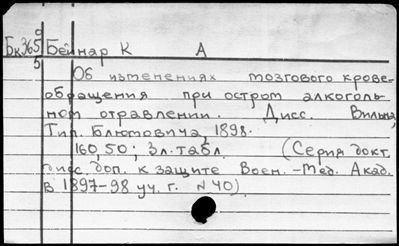 Бк365 Бейнар К А
5
Об изменениях мозгового крове-
обращения при остром алкоголь-
ном отравлении. Дисс. Вильна,
Тип. Блюмовича, 1898.
160, 50; 3л. табл. (Серия докт.
дисс. доп. к защите Воен.-Мед. Акад.
в 1897-98 уч. г. N 40).